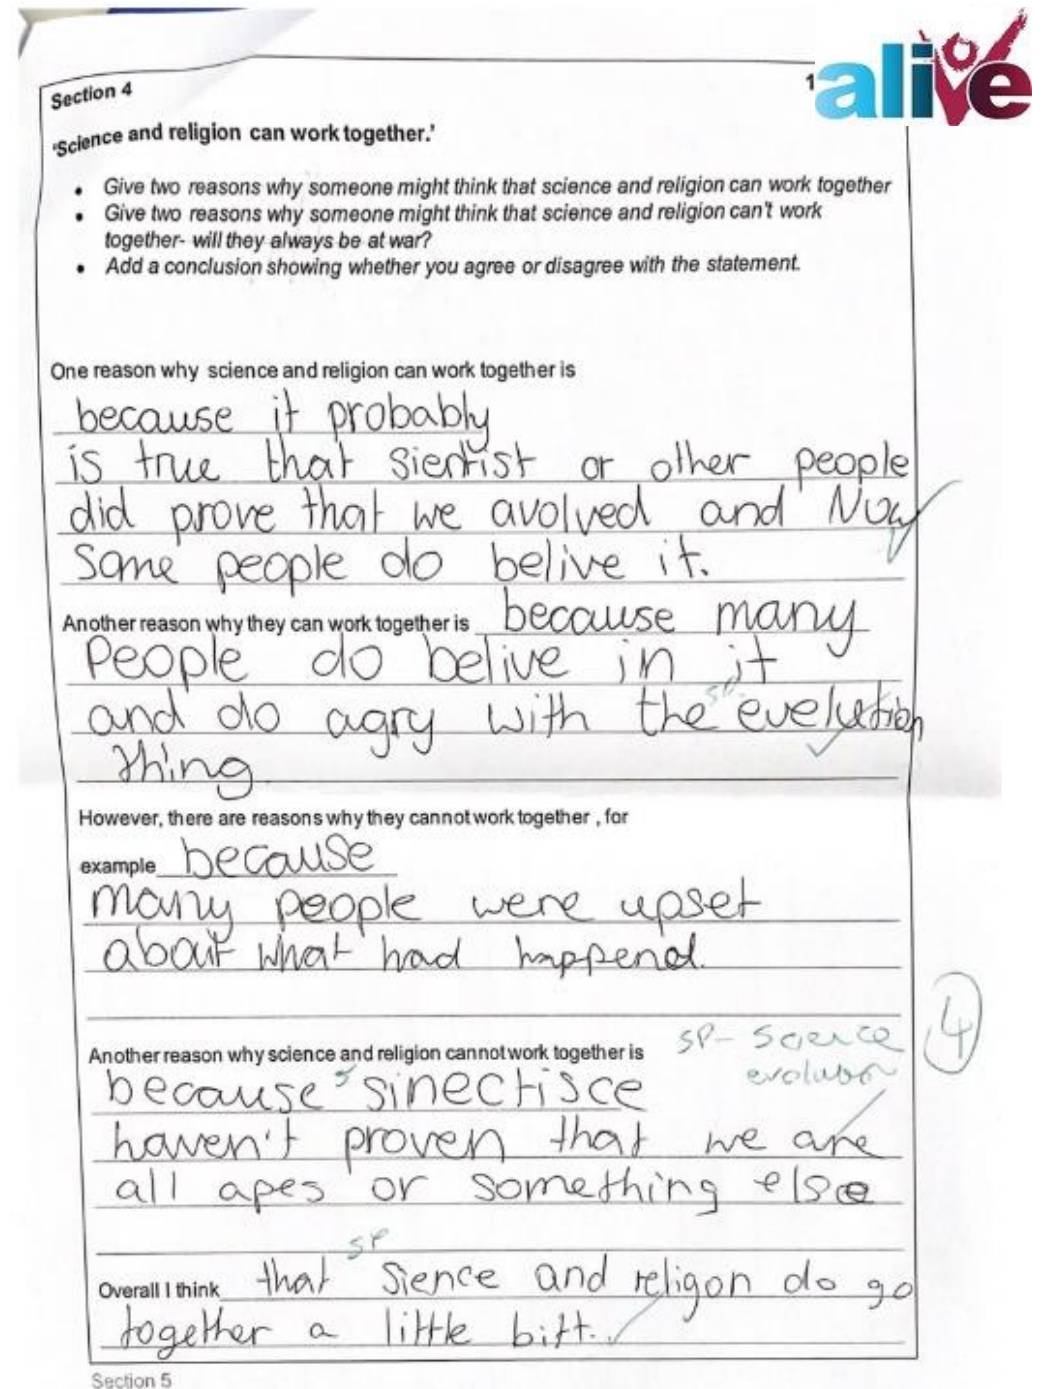 Section 4
1
alive
'Science and religion can work together.'
• Give two reasons why someone might think that science and religion can work together
• Give two reasons why someone might think that science and religion can't work
together- will they always be at war?
• Add a conclusion showing whether you agree or disagree with the statement.
One reason why science and religion can work together is
because it probably
is true that sientist or other people
did prove that we avolved and Now
Some people do belive it.
Another reason why they can work together is because many
People do belive in it
sp.
and do agry with the evelution
thing.
However, there are reasons why they cannot work together , for
example because
many people were upset
about what had happend.
4
sp- science
Another reason why science and religion cannot work together is
evolution
because s sinectisce
haven't proven that we are
all apes or something else
sp
Overall I think that Sience and religon do go
together a little bitt.
Section 5